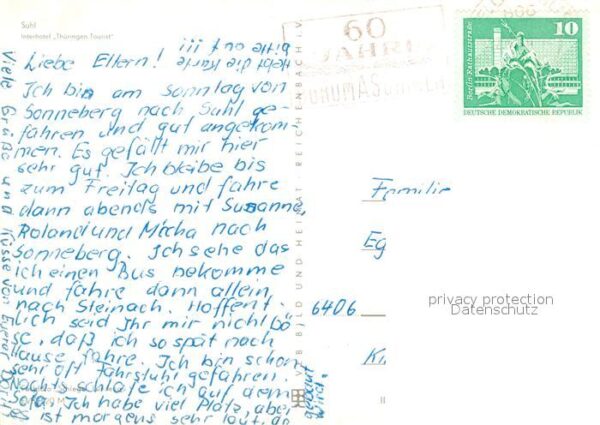 Suhl
Interhotel „Thüringen Tourist"
Liebe Eltern!
Hebt die Karte
bitte auf !!!
Ich bin am Sonntag von
Sonneberg nach Suhl ge-
fahren und gut angekom-
men. Es gefällt mir hier
sehr gut. Ich bleibe bis
zum Freitag und fahre
dann abends mit Susanne,
Roland und Micha nach
Sonneberg. Ich sehe das
ich einen Bus bekomme
und fahre dann allein
nach Steinach. Hoffent-
lich seid Ihr mir nicht bö
se, daß ich so spät nach
Hause fahre. Ich bin schon
sehr oft Fahrstuhl gefahren.
Nachts schlafe ich auf dem
Sofa. Ich habe viel Platz, aber
ist morgens sehr laut, da
gebaut
wird.
Viele Grüße und Küsse von Eurer
60
JAHRE
REICHENBACH I. V.
BILD UND HEIMAT
10
Berlin, Rathausstraße
DEUTSCHE DEMOKRATISCHE REPUBLIK
Familie
Eg
6406
privacy protection
Datenschutz